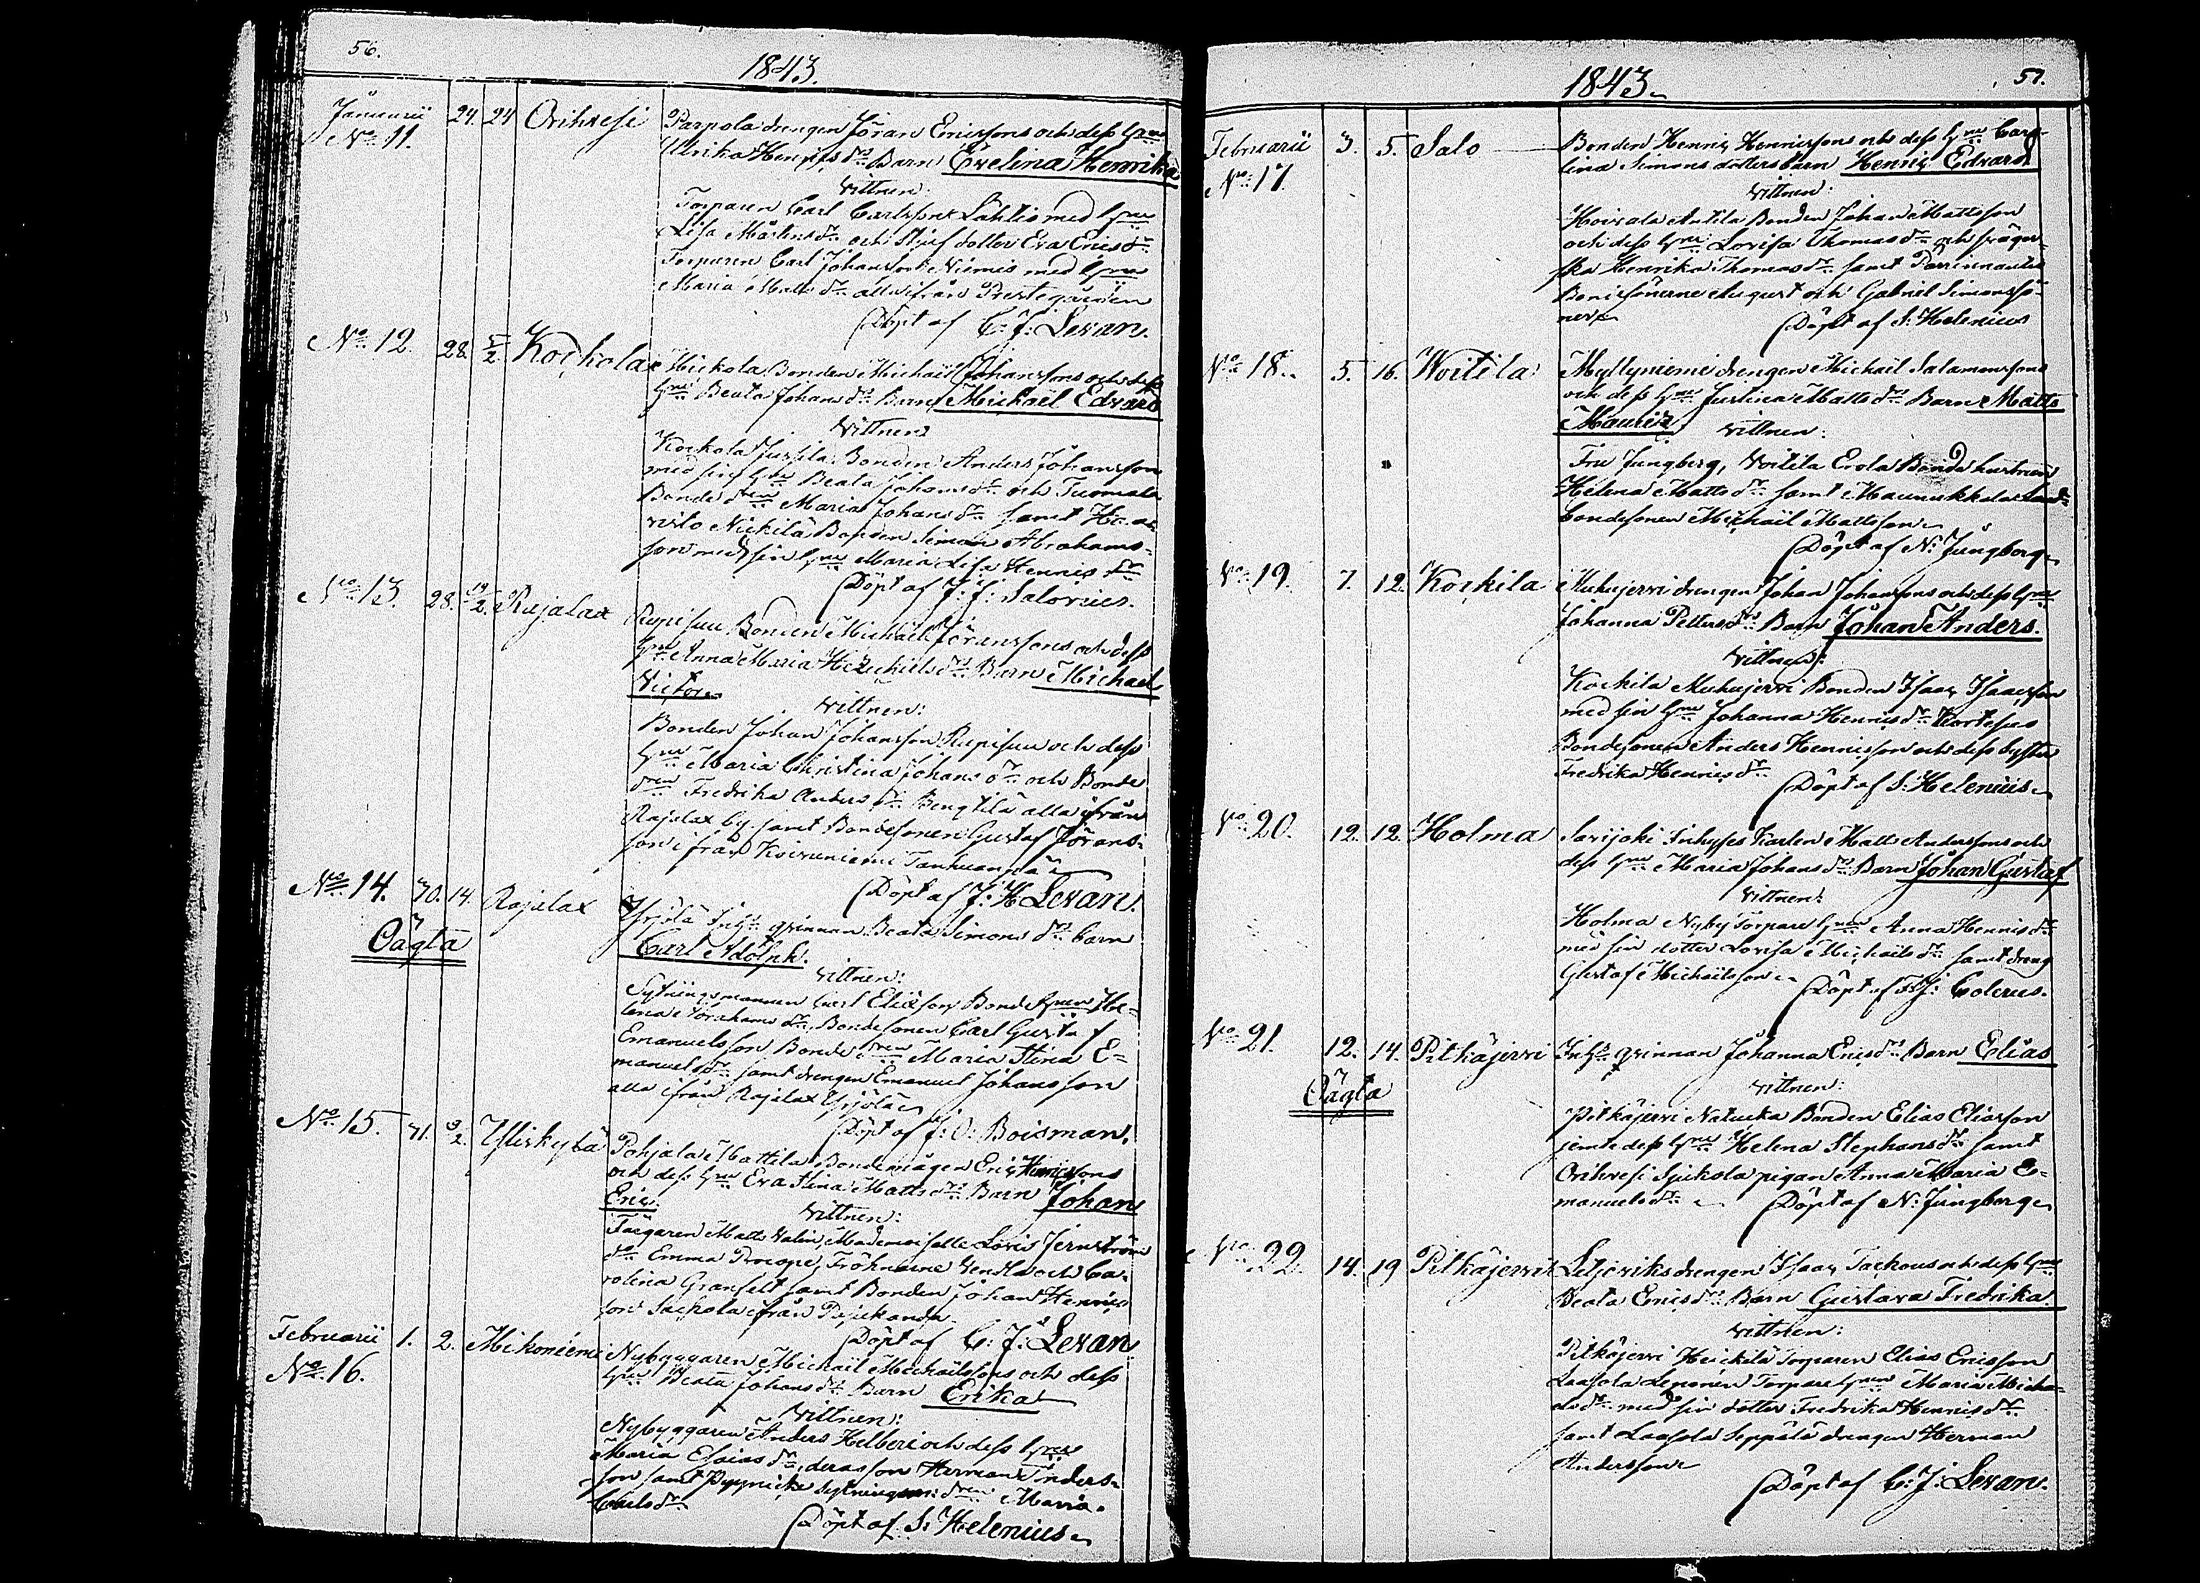 56.
1843.
Januarii 24. 24 Orihvesi Parpola drengen Jöran Ericssons och dess h:ru
No 11. Ulrika Henrics drs Barn Evelina Henrika
Vittnen:
Torparen Carl Carlsson Lähtis med h:run
Lisa Mårtens dr och Styfdotter Eva Erics dr
Torparen Carl Johansson Niemis med h:run
Maria Matts dr alla ifrån Prestegården
Döpt af C: J: Levan.
No 12. 28. 5/2 Kockola Mickola Bonden Michaël Johanssons och dess
h:ru Beata Johans drs Barn Michaël Edvard
Vittnen:
Kockola Jussila Bonden Anders Johansson
med sin h:ru Beata Johans dr och Tuomala
Bonde dren Maria Johans dr samt
Nickilä Bonden Simon Abrahams-
son med sin h:ru Maria Lisa Henrics dr
Döpt af J: J: Salovius.
No 13. 28. 12/2. Rajalax Rupisuu Bonden Michaël Jöranssons och dess
h:ru Anna Maria Hezekiels drs Barn Michaël
Victor
Vittnen:
Bonden Johan Johansson Rupisuu och dess
h:ru Maria Christina Johans dr och Bonde
dren Fredrika Anders dr Bengtilä alla ifrån
Rajalax by samt Bondesonen Gustaf Jörans-
son ifrån Koivuniemi
Döpt af J: H Levan.
No 14. 30. 14. Rajalax Yrjölä Inh:s qvinnan Beata Simons drs barn
Oägta Carl Adolph.
Vittnen:
Sytningsmannen Carl Eliasson, Bonde h:run He-
lena Abrahams dr, Bondesonen Carl Gustaf
Emanuelsson Bonde dren Maria Stina E-
manuels dr samt drengen Emanuel Johansson
alla ifrån Rajalax Yrjölä
Döpt af J: O: Boisman.
No 15. 31. 9/2. Yliskylä Pohjala Mattila Bondemågen Eric Henricssons
och dess h:ru Eva Stina Matts drs Barn Johan
Eric.
Vittnen:
Färgaren Matts Valin, Mademoiselle Lovis Jernström
do Emma Procopé, Fröknarne Vendla och Ca-
rolina Granfelt samt Bonden Johan Henrics-
son Sackola ifrån
Döpt af C: J: Levan
Februarii 1. 2. Mikoniemi Nybyggaren Michaël Michaëlssons och dess
No 16. h:ru Beata Johans drs Barn Erika
Vittnen:
Nybyggaren Anders Helberi och dess h:ru
Maria Esaias dr, deras son Herman Anders-
son samt sytningsm: dren Maria
dr
Döpt af S: Helenius
1843. 57.
Februarii 3. 5. Salo Bonden Henric Henricssons och dess h:ru Caro-
No 17. lina Simons dotters barn Henric Edvard
Vittnen:
Hoivala Antila Bonden Johan Mattsson
och dess h:ru Lovisa Thomas dr och sväger-
ska Henrika Thomas dr samt
Bondesönerne August och Gabriel Simonssö-
ner
Döpt af S: Helenius
No 18. 5. 16. Woitila Myllyniemi drengen Michaël Salomonssons
och dess h:ru Justina Matts drs Barn Matts
Mauriz Vittnen:
Fru Jungberg, Voitila Erola Bonde hustrun
Helena Matts dr samt Maunukkala
bondesonen Michaël Mattsson
Döpt af N: Jungberg
No 19. 7. 12. Kockila Muhujervi drengen Johan Johanssons och dess h:ru
Johanna Petters drs Barn Johan Anders.
Vittnen:
Kockila Muhujervi Bonden Isaac Isaacsson
med sin h:ru Johanna Henrics dr
Bondesonen Anders Henricsson och dess syster
Fredrika Henrics dr
Döpt af S: Helenius
No 20. 12. 12. Holma Savijoki Inhyses Karlen Matts Anderssons och
dess h:ru Maria Johans drs Barn Johan Gustaf
Vittnen:
Holma Nyby Torpare h:run Anna Henrics dr
med sin dotter Lovisa Michaëls dr samt dreng
Gustaf Michaëlsson
Döpt af F: J: Colerus.
No 21. 12. 14. Pitkäjervi Inh:s qvinnan Johanna Erics drs Barn Elias
Oägta Vittnen:
Pitkäjervi Natucka Bonden Elias Eliasson
jemte dess h:ru Helena Stephans dr samt
Orihvesi Sjukola pigan Anna Maria E-
manuels dr
Döpt af N: Jungberg
No 22. 14. 19 Pitkäjervi drengen Isaac och dess h:ru
Beata Erics drs Barn Gustava Fredrika.
Vittnen:
Pitkäjervi Heickilä Torparen Elias Ericsson
Laasola Leponen Torpare h:run Maria Micha-
els dr med sin dotter Fredrika Henrics dr
samt Laasola Seppälä drengen Herman
Andersson
Döpt af C: J: Levan.